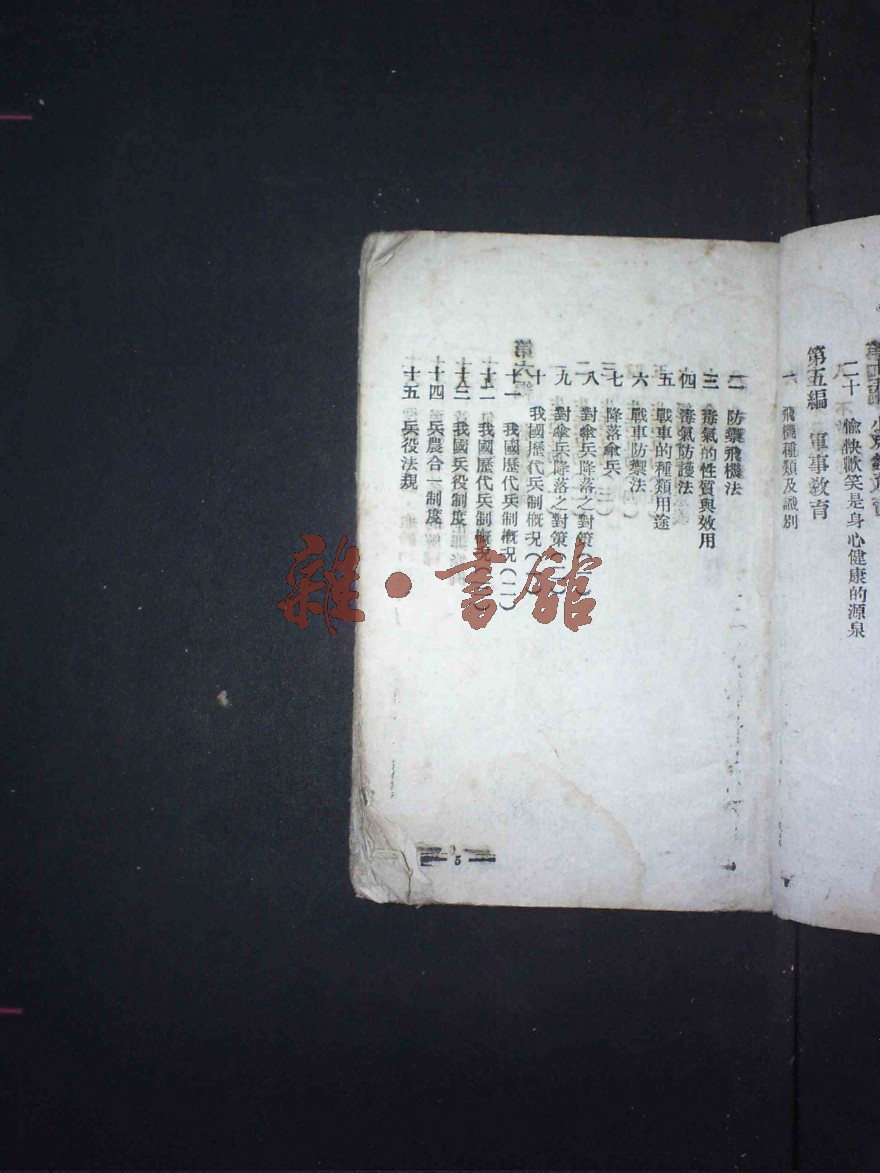 二十　愉快歡笑是身心健康的源泉
第五編　軍事教育
一　飛機種類及識別
二　防禦飛機法
三　毒氣的性質與效用
四　毒氣防護法
五　戰車的種類用途
六　戰車防禦法
七　降落傘兵
八　對傘兵降落之對策
九　對傘兵降落之對策
十　我國歷代兵制概況
十一　我國歷代兵制概況(二)
十二　我國歷代兵制概況
十三　我國兵役制度
十四　兵農合一制度
十五　兵役法規
雜·書館